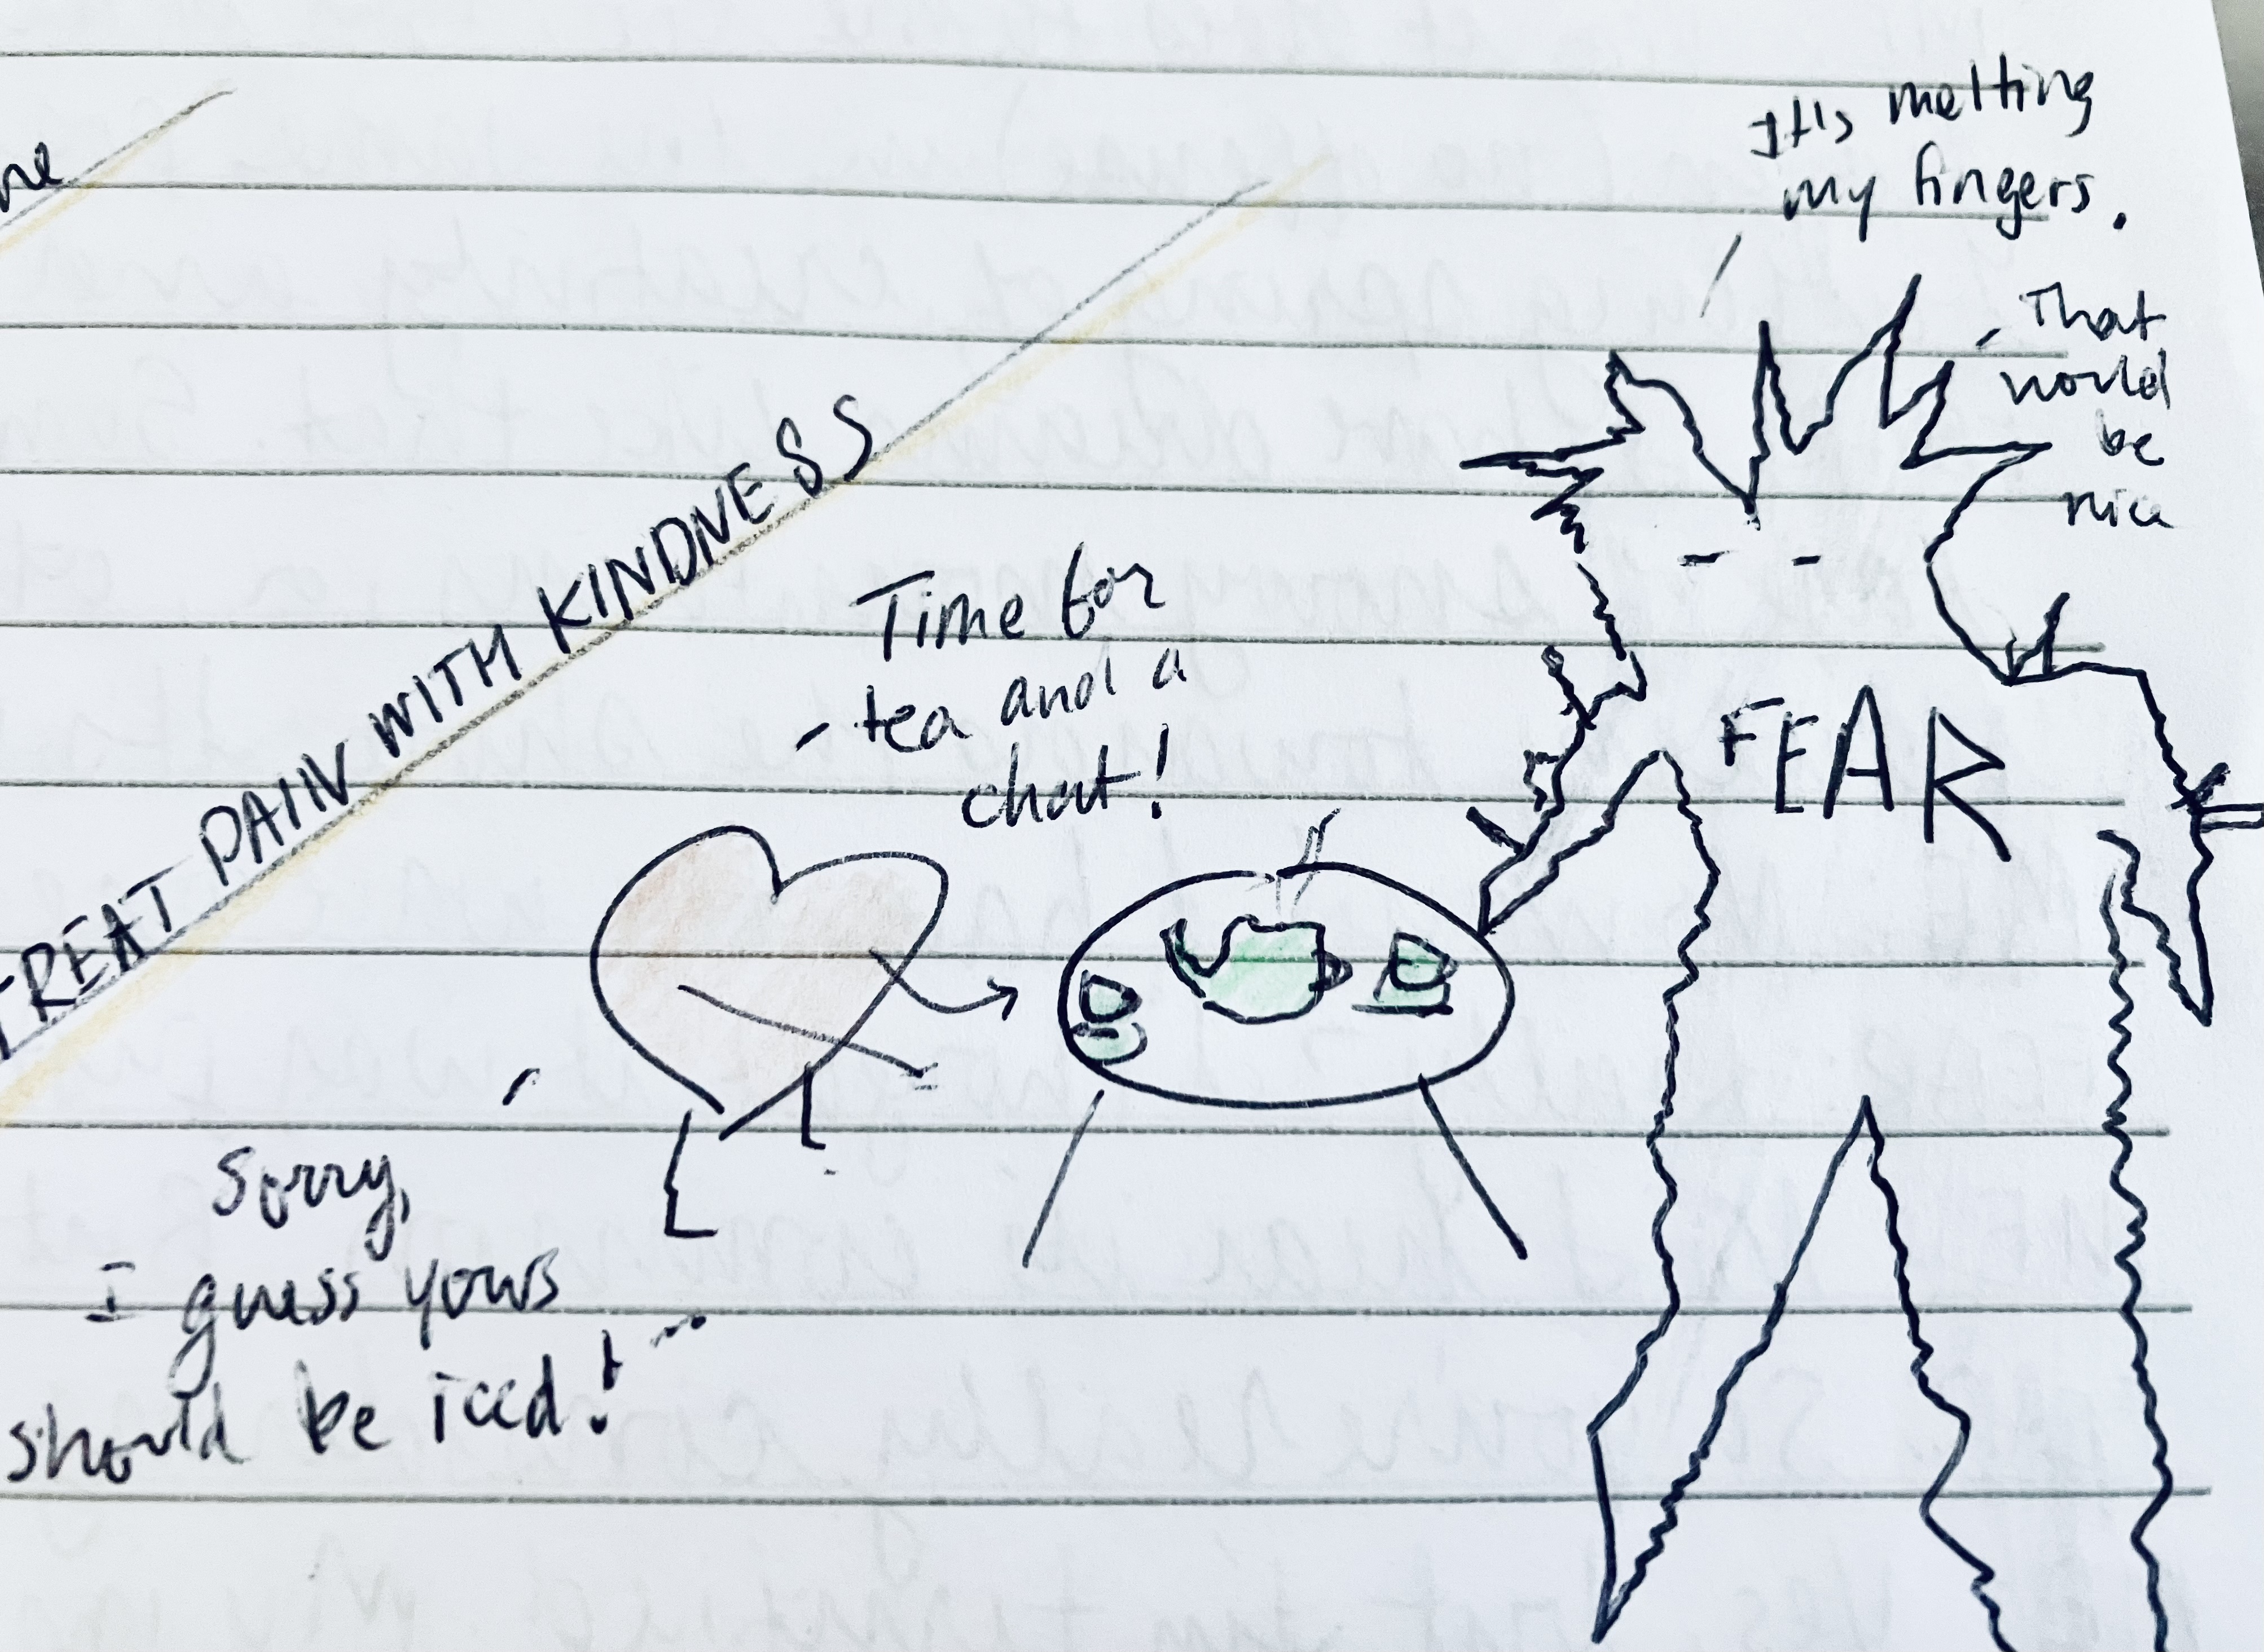 TREAT PAIN WITH KINDNESS
Time for
tea and a
chat!
It's melting
my fingers.
Sorry,
I guess yours
should be iced!
That
would
be
nice
FEAR